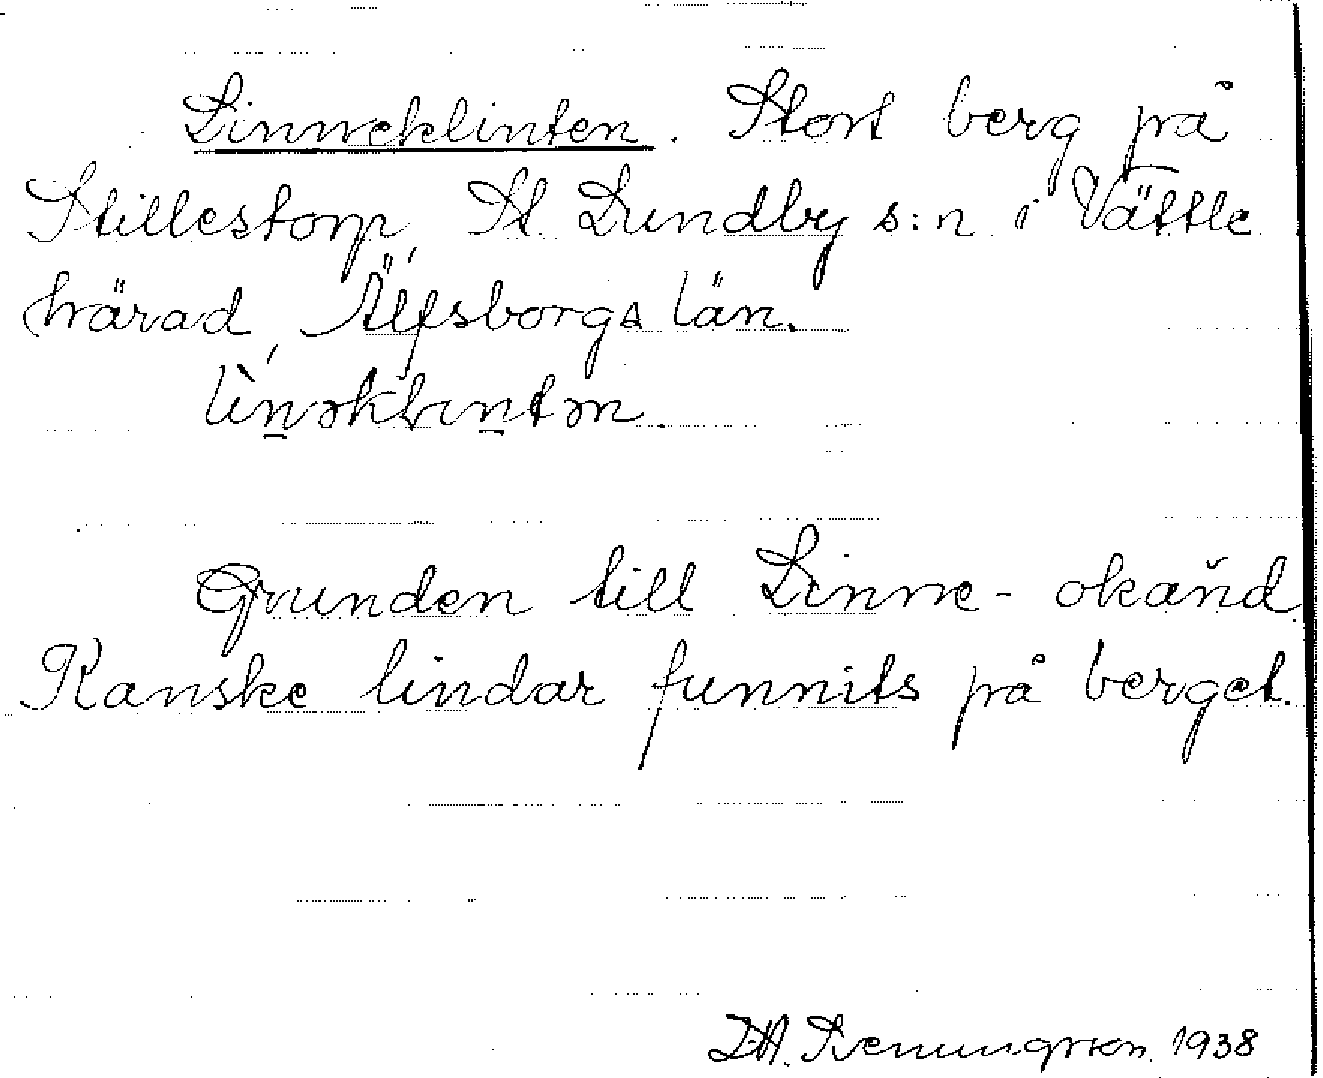 Linneklinten. Stort berg på
Stillestorp, St. Lundby s:n i Vättle
härad, Älfsborgs län.
Grunden till Linne- okänd.
Kanske lindar funnits på berget.
1938